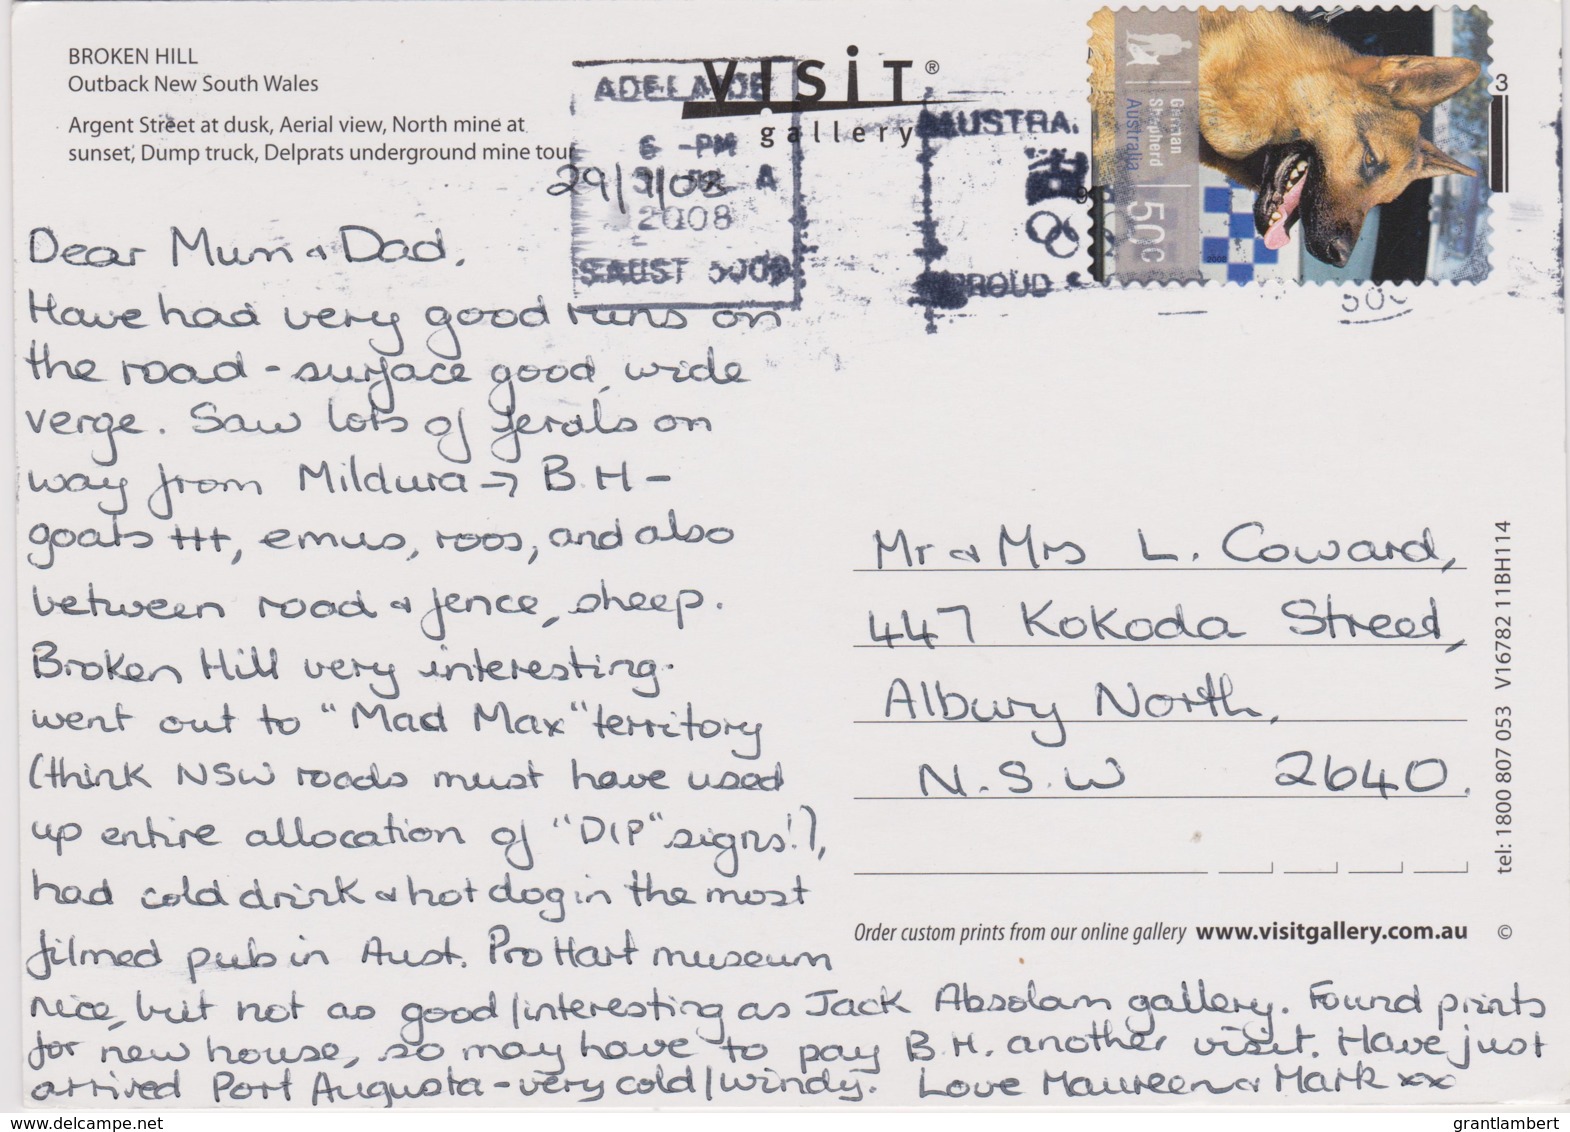 BROKEN HILL
Outback New South Wales
Argent Street at dusk, Aerial view, North mine at
sunset, Dump truck, Delprats underground mine tour
VISIT®
gallery
ADELAIDE
6 -PM
A
2008
S.AUST 5000
AUSTRA.
PROUD
German
Shepherd
Australia
50c
2008
3
50c
29/7/08
Dear Mum & Dad,
Have had very good runs on
the road - surface good, wide
verge. Saw lots of ferals on
way from Mildura → B.H -
goats +++, emus, roos, and also
between road & fence, sheep.
Broken Hill very interesting.
went out to "Mad Max" territory
(think NSW roads must have used
up entire allocation of "DIP" signs!),
had cold drink & hot dog in the most
filmed pub in Aust. Pro Hart museum
nice, but not as good/interesting as Jack Absolam gallery. Found prints
for new house, so may have to pay B.H. another visit. Have just
arrived Port Augusta - very cold/windy. Love Maureen & Mark xx
Mr & Mrs L. Coward,
447 Kokoda Street,
Albury North,
N.S.W 2640.
Order custom prints from our online gallery www.visitgallery.com.au ©
tel: 1800 807 053 V16782 11BH114
www.delcampe.net
grantlambert